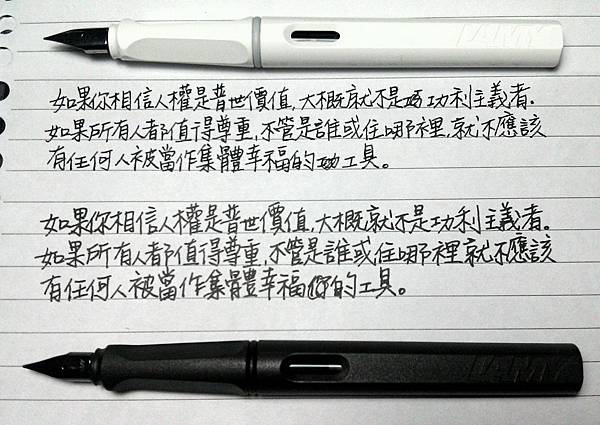 LAMY
如果你相信人權是普世價值,大概就不是功利主義者.
如果所有人都值得尊重,不管是誰或住哪裡,就不應該
有任何人被當作集體幸福的工具。
如果你相信人權是普世價值,大概就不是功利主義者.
如果所有人都值得尊重,不管是誰或住哪裡就不應該
有任何人被當作集體幸福的工具。
LAMY